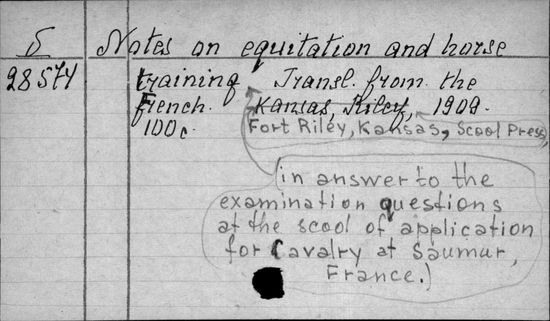 δ Notes on equitation and horse
28574 training Transl. from the
french. Kansas, Riley, 1909.
100c. Fort Riley, Kansas, Scool Press,
(in answer to the
examination questions
at the scool of application
for Cavalry at Saumur,
France.)